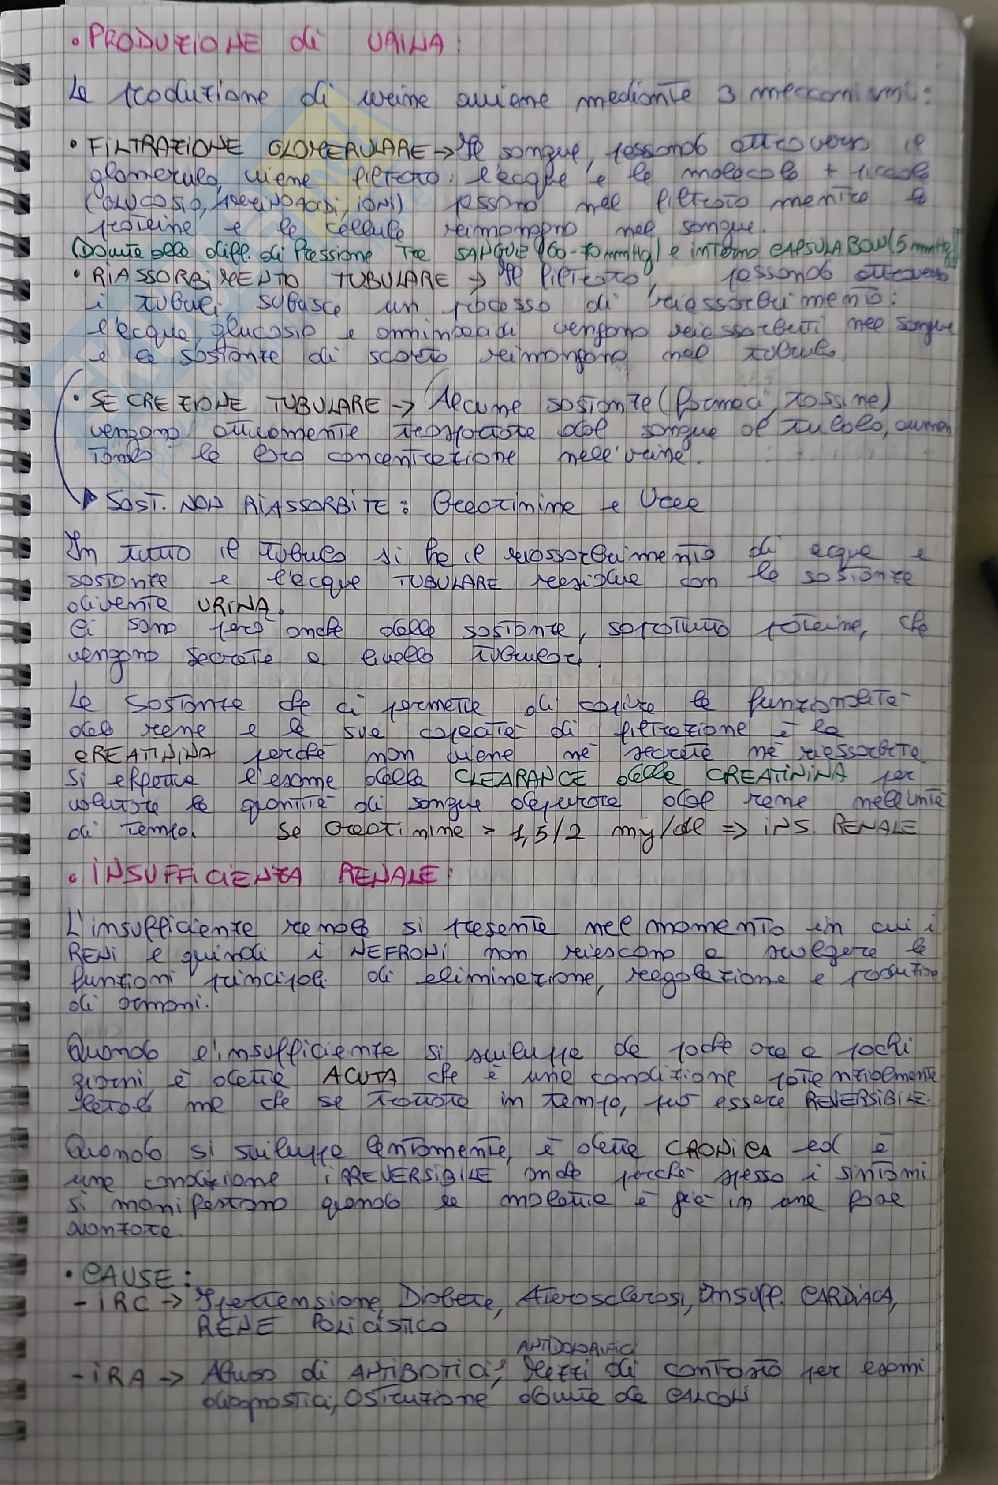 • PRODUZIONE di URINA:
La produzione di urina avviene mediante 3 meccanismi:
• FILTRAZIONE GLOMERULARE → Il sangue, passando attraverso il
glomerulo, viene filtrato: l'acqua e le molecole + piccole
(GLUCOSIO, AMMINOACIDI, IONI) passano nel filtrato mentre le
proteine e le cellule rimangono nel sangue.
(Dovuta alla diff. di Pressione Tra SANGUE (60-70mmHg) e interno CAPSULA BOW (5mmHg)
• RIASSORBIMENTO TUBULARE → Il filtrato, passando attraverso
i tubuli subisce un processo di riassorbimento:
l'acqua, glucosio e amminoacidi vengono riassorbiti nel sangue
e le sostanze di scarto rimangono nel tubulo
• SECREZIONE TUBULARE → Alcune sostanze (farmaci, tossine)
vengono attivamente trasportate dal sangue al tubulo, aumen
tando la loro concentrazione nell'urina.
SOST. NON RIASSORBITE: Creatinina e Urea
In tutto il tubulo si ha il riassorbimento di acqua e
sostanze e l'acqua TUBULARE residua con le sostanze
diventa URINA.
Ci sono però anche delle sostanze, soprattutto proteine, che
vengono secrete a livello tubulare.
La sostanza che ci permette di capire la funzionalità
del rene e la sua capacità di filtrazione è la
CREATININA perché non viene né secreta né riassorbita
Si effettua l'esame della CLEARANCE della CREATININA per
valutare la quantità di sangue depurata dal rene nell'unità
di tempo. Se Creatinina > 1,5/2 mg/dl => INS. RENALE
• INSUFFICIENZA RENALE:
L'insufficienza renale si presenta nel momento in cui i
RENI e quindi i NEFRONI non riescono a svolgere le
funzioni principali di eliminazione, regolazione e produzione
di ormoni.
Quando l'insufficienza si sviluppa da poche ore a pochi
giorni è detta ACUTA che è una condizione potenzialmente
letale ma che se trattata in tempo, può essere REVERSIBILE.
Quando si sviluppa lentamente, è detta CRONICA ed è
una condizione IRREVERSIBILE anche perché spesso i sintomi
si manifestano quando la malattia è già in una fase
avanzata.
• CAUSE:
- IRC → Ipertensione, Diabete, Aterosclerosi, Insuff. CARDIACA,
RENE POLICISTICO
ANTIDOLORIFICI
- IRA → Abuso di ANTIBIOTICI, Mezzi di contrasto per esami
diagnostici, Ostruzione dovuta da CALCOLI